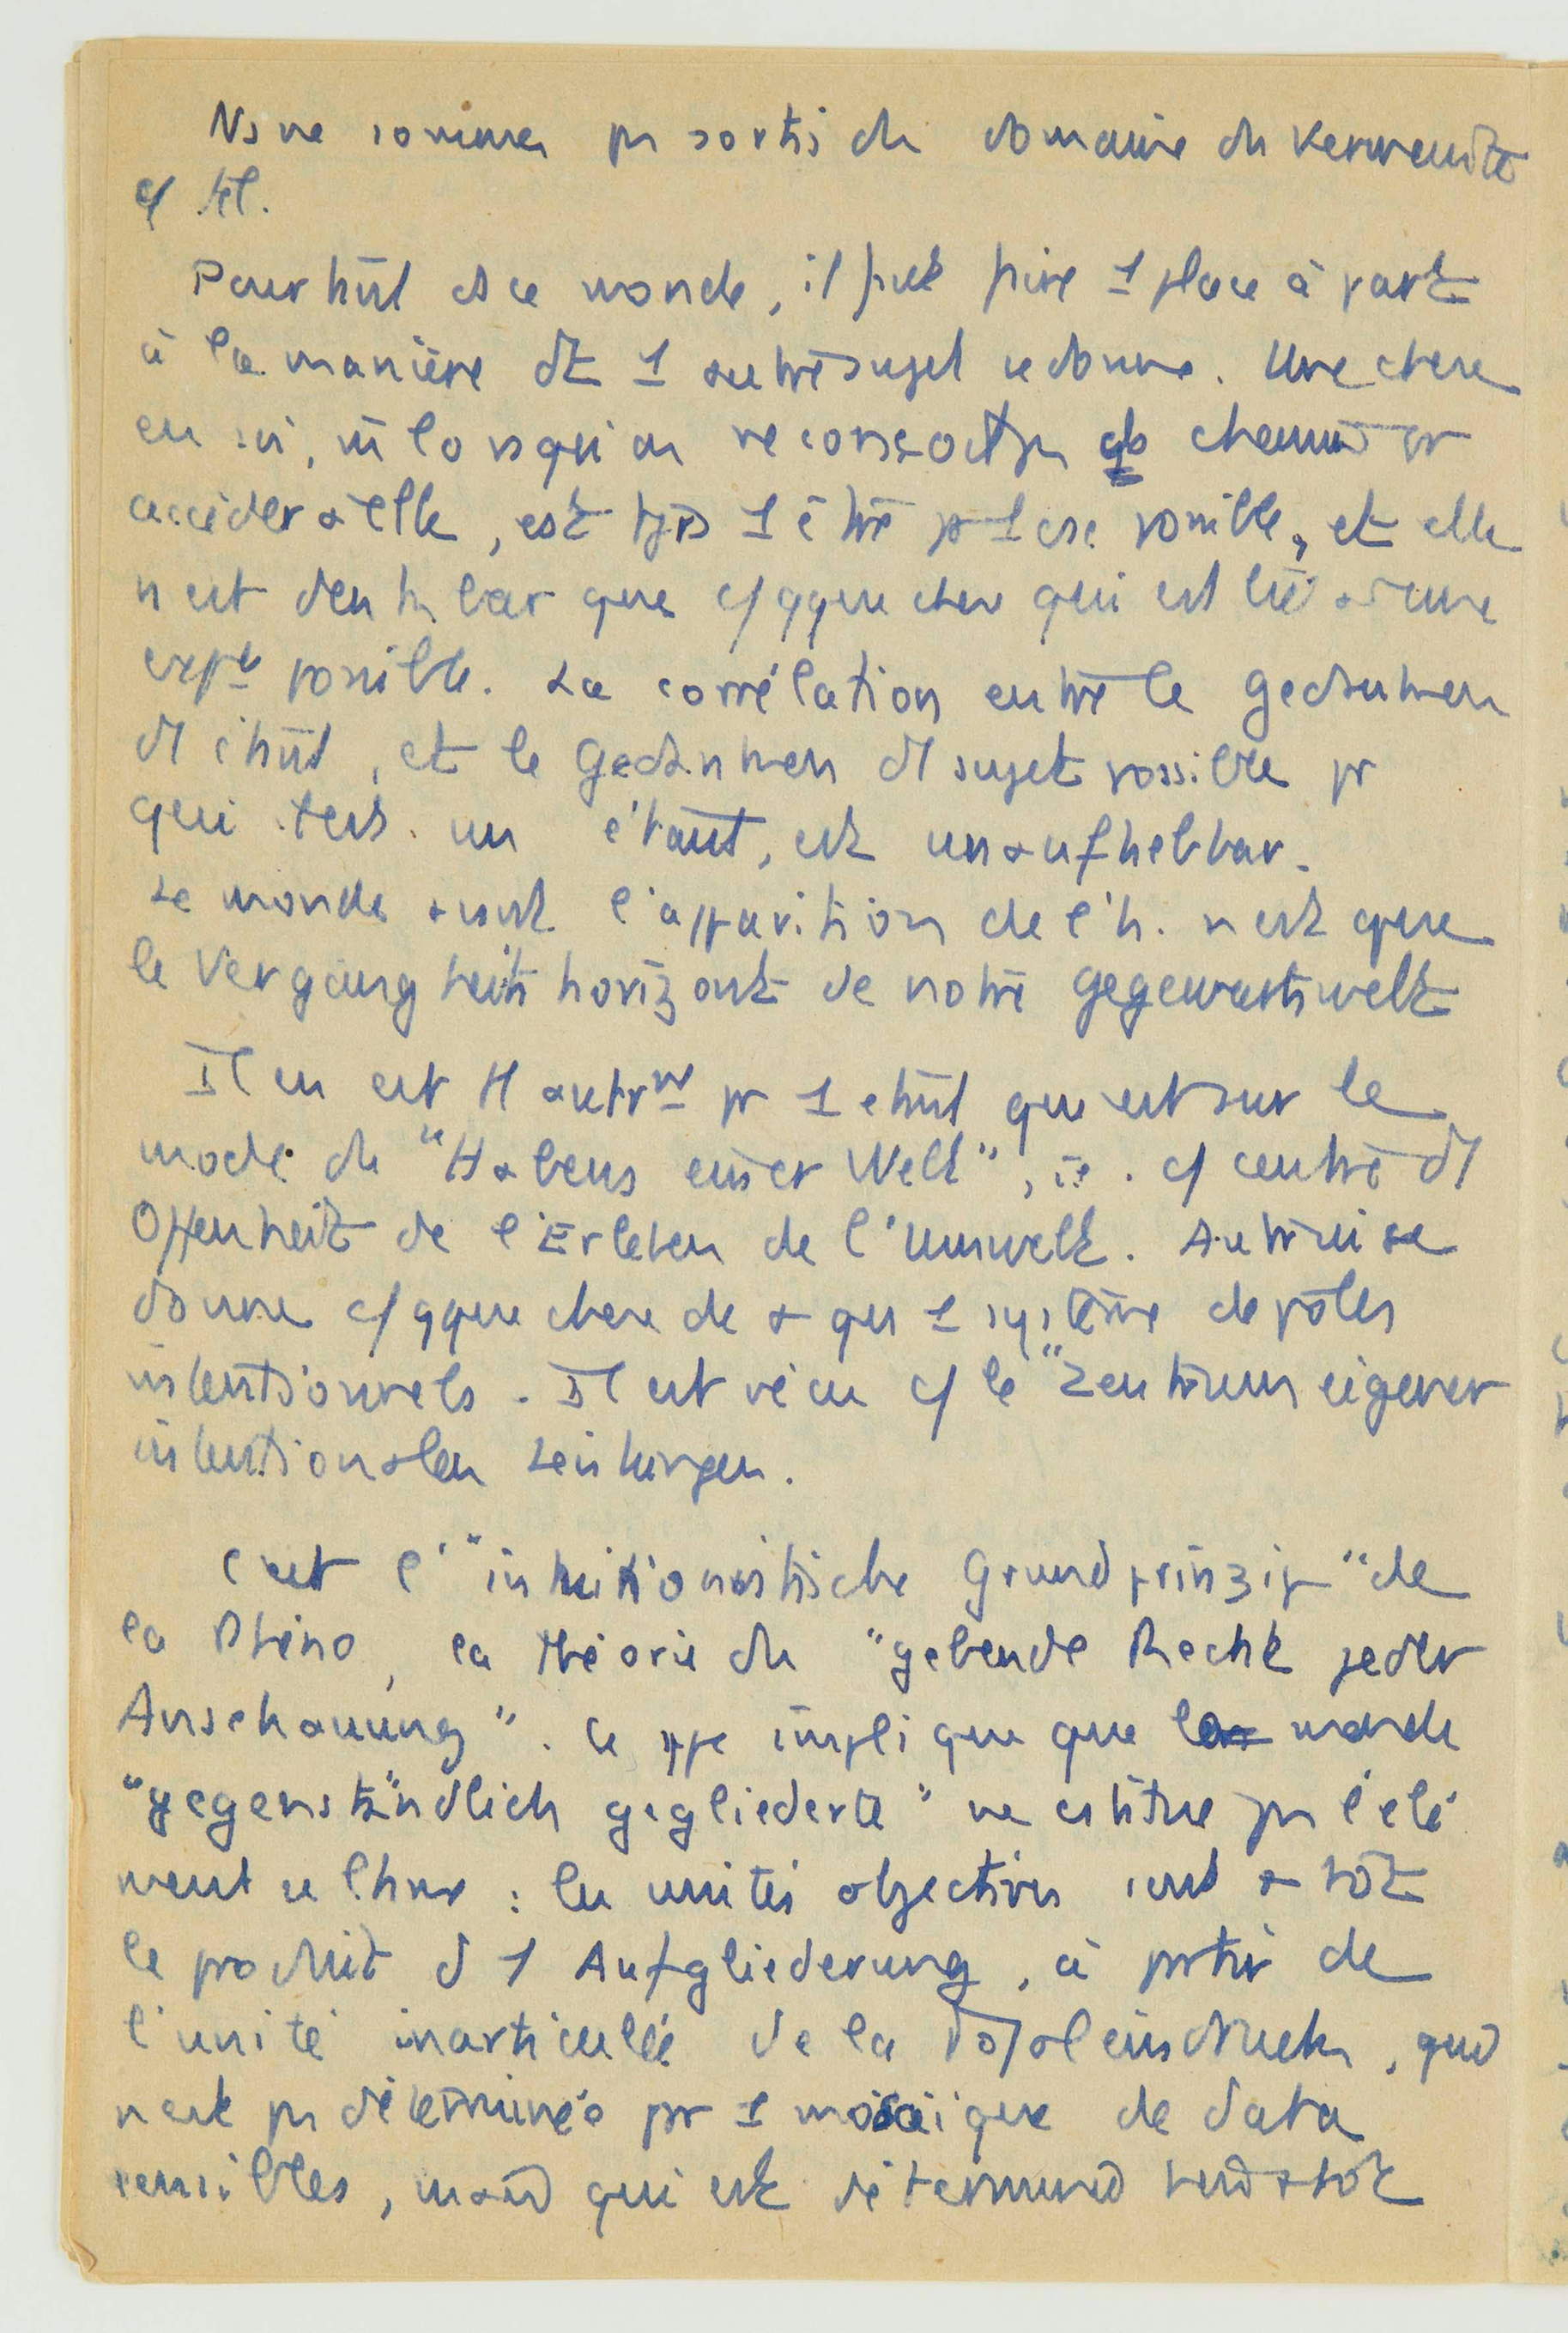 Ns ne sommes ps sortis du domaine du Verwandte
c/ tel.
Pourtant ds ce monde, il faut faire 1 place à part
à la manière dt 1 autre sujet se donne. Une chose
en soi, m̄ lorsqu'on ne connaît ps ds chemins pr
accéder à elle, est tjrs 1 être pr 1 csc. possible, et elle
n'est denkbar que c/ qque chose qui est lié à une
expce possible. La corrélation entre le Gedanken
d'1 étant, et le Gedanken d'1 sujet possible pr
qui tout un étant, est unaufhebbar.
Le monde avant l'apparition de l'h. n'est que
le Vergangheitshorizont de notre Gegenwartswelt
Il en est tt autrmt pr 1 étant qui est sur le
mode du "Habens einer Welt", ie. c/ centre d'1
Offenheit de l'Erleben de l'Umwelt. Autrui se
donne c/ qque chose de + qu'1 système de pôles
intentionnels. Il est vécu c/ le "Zentrum eigener
intentionalen Leistungen.
C'est l'"intuitionistische Grundprinzip" de
la Phéno, la théorie du "gebende Recht jeder
Anschauung". Ce ppe implique que le monde
"gegenständlich gegliederte" ne cstitue ps l'élé
ment ultime : les unités objectives sont + tôt
le produit d'1 Aufgliederung, à partir de
l'unité inarticulée de la Totaleindrucks, qui
n'est ps déterminée par 1 mosaïque de data
sensibles, mais qui est déterminée bien + tôt